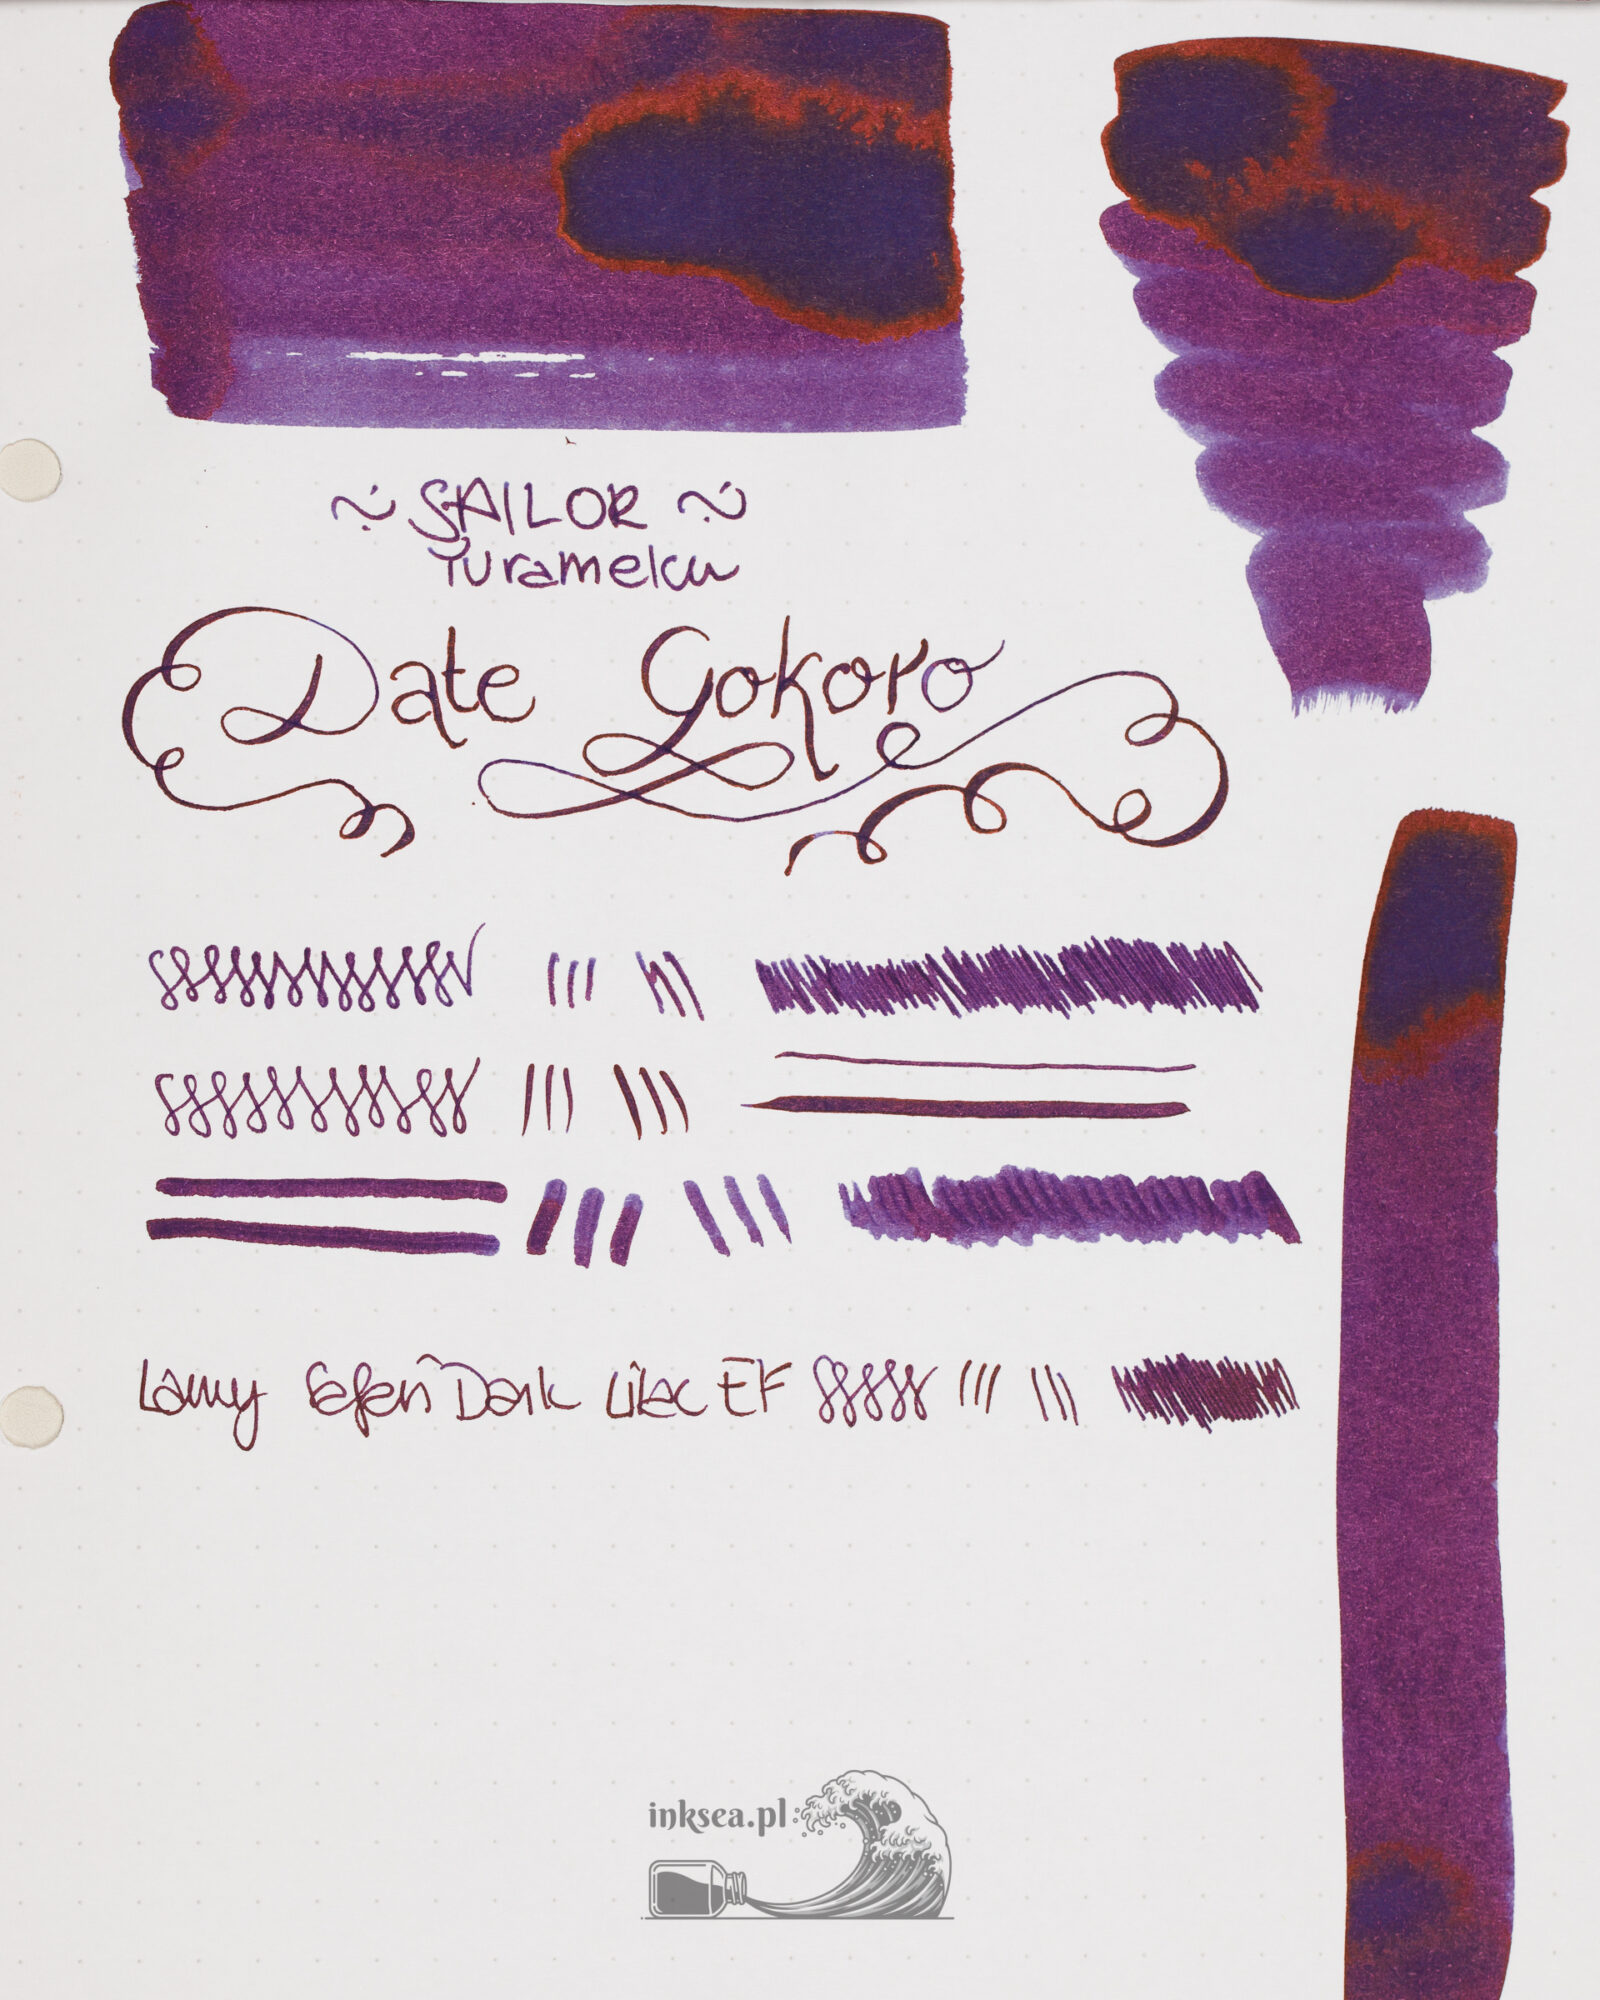 ~ SAILOR ~
Yurameku
Date Gokoro
Lamy Safari Dark Lilac EF
inksea.pl